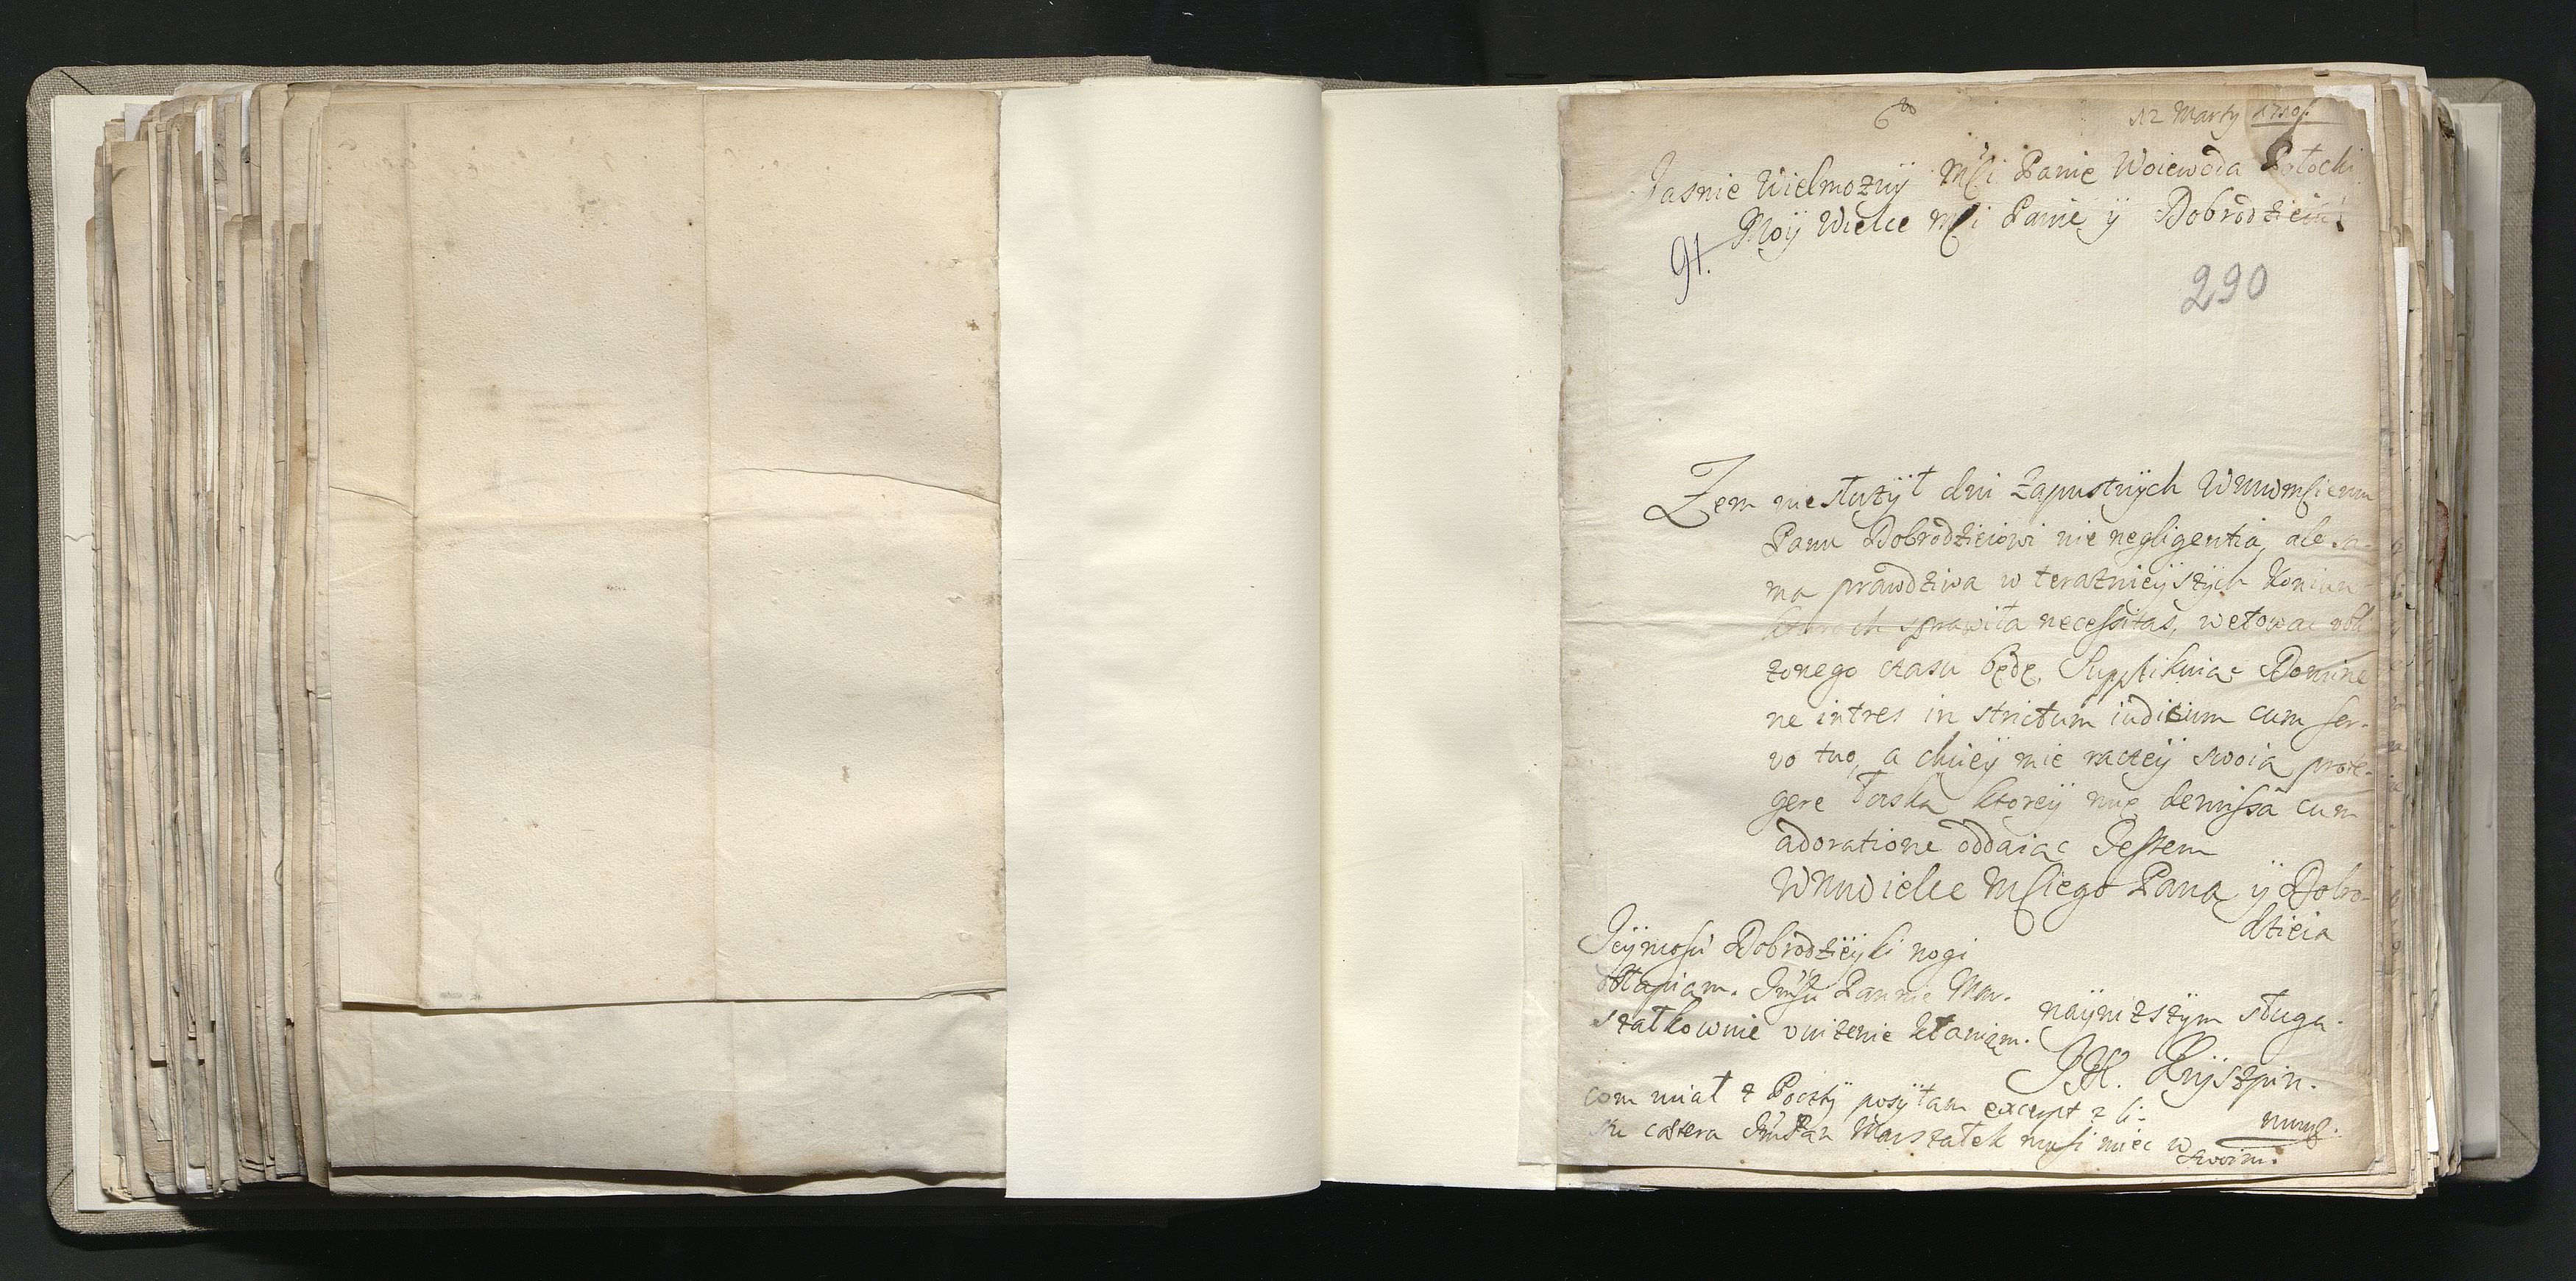 6
12 Marty 1710
Jasnie Wielmozny Mści Panie Woiewoda Połocki
Moy Wielce Mści Panie y Dobrodzieiu!
91.
290
Zem nie słuzył dni Zapustnych WMMMsciemu
Panu Dobrodzieiowi nie negligentia, ale sa-
ma prawdziwa w teraznieyszych koniun-
kturach sprawiła necessitas, wetować
zonego czasu będę, Supplikuiąc Domine
ne intres in strictum iudicium cum ser-
vo tuo, a chciey mie raczey swoią prote-
gere łaską ktorey mię demissa cum
adoratione oddaiąc Jestem
WMMWielce Mściego Pana y Dobro-
dzieia
Jeymosci Dobrodzieyki nogi
obłapiam. Jmści Pannie Mar-
szałkownie unizenie kłaniam.
nayniższym sługą.
JH. Kryszpin.
mmp.
com miał z Poczty posyłam except z li-
ski cætera JmPan Marszałek musi miec w
swoim.